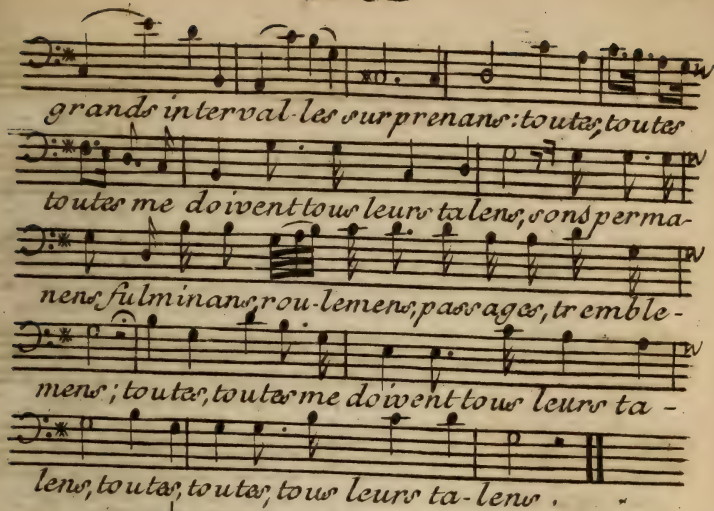 grands interval-les surprenans: toutes, toutes
toutes me doivent tous leurs talens, sons perma-
nens fulminans, rou-lemens, passages, tremble-
mens; toutes, toutes me doivent tous leurs ta-
lens, toutes, toutes, tous leurs ta-lens.